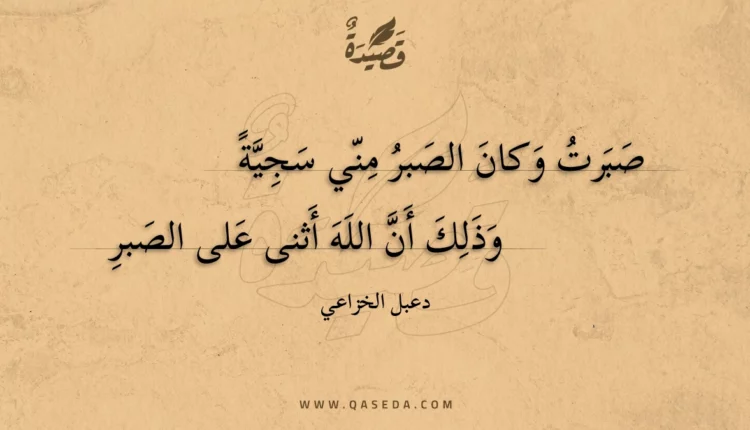 قَصِيْدَةٌ
صَبَرتُ وَكانَ الصَبرُ مِنّي سَجِيَّةً
وَذَلِكَ أَنَّ اللَهَ أَثنى عَلى الصَبرِ
دعبل الخزاعي
WWW.QASEDA.COM